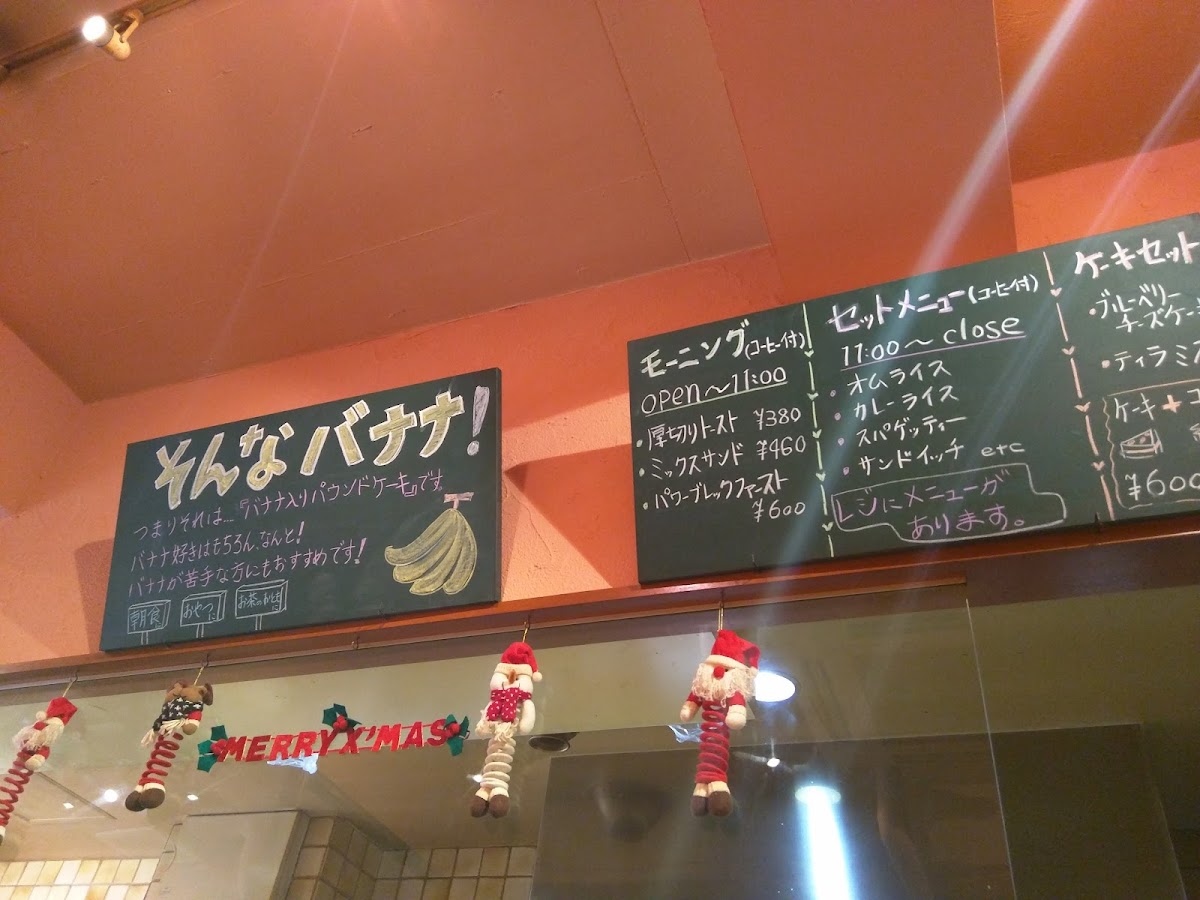 そんなバナナ!
つまりそれは…『バナナ入りパウンドケーキ』です。
バナナ好きはもちろん、なんと!
バナナが苦手な方にもおすすめです!
朝食に
おやつに
お茶のお供に
モーニング(コーヒー付)
open〜11:00
・厚切りトースト ¥380
・ミックスサンド ¥460
・パワーブレックファースト
¥600
セットメニュー(コーヒー付)
11:00〜close
・オムライス
・カレーライス
・スパゲッティー
・サンドイッチ etc
レジにメニューが
あります。
ケーキセット
・ブルーベリー
チーズケーキ
・ティラミス
ケーキ+コ
¥600
MERRY X'MAS